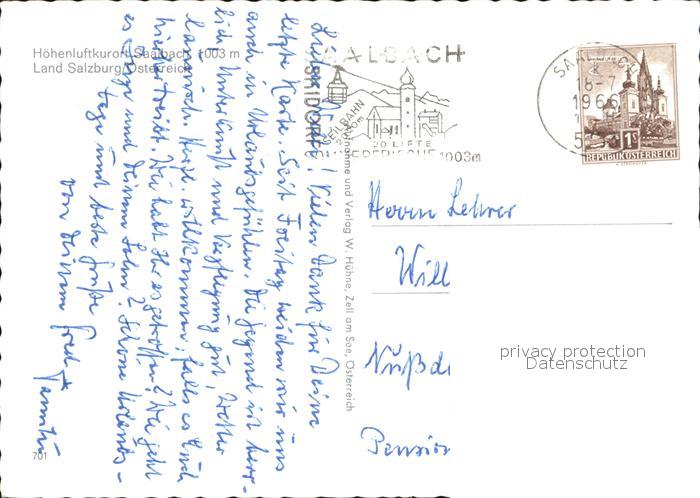 Höhenluftkurort Saalbach, 1003 m
Land Salzburg/Österreich
SAALBACH
SKIDORF
SEILBAHN
20 LIFTE
SOMMERFRISCHE 1003m
SAALBACH
1966
1 S
REPUBLIK ÖSTERREICH
Aufnahme und Verlag W. Hühne, Zell am See, Österreich
Lieber Willi! Vielen Dank für Deine
letzte Karte. Seit Freitag weiden wir uns
auch in Urlaubsgefühlen. Die Gegend ist herr-
lich, Unterkunft und Verpflegung gut, Wetter
launisch. Herzl. willkommen, falls es Euch
hierher treibt. Wie habt Ihr es getroffen? Wie geht
es Inge und Deinem Sohn? Schöne Urlaubs-
tage und beste Grüße
von Deinem Fred +
Familie
Herrn Lehrer
Will
Nußd
Pension
privacy protection
Datenschutz
701